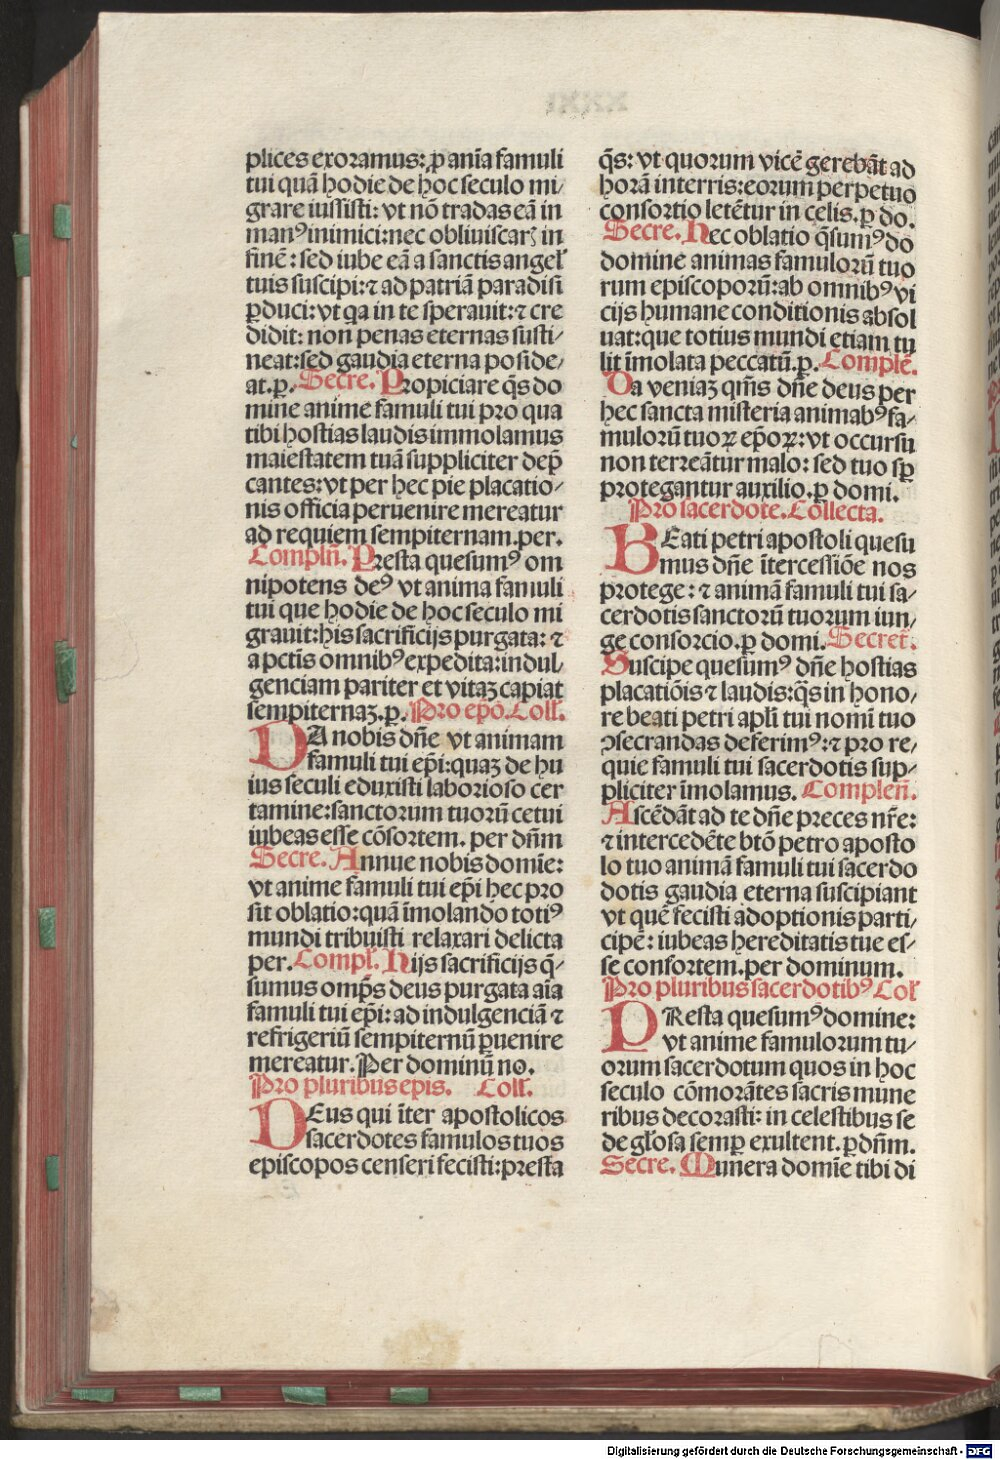 plices exoramus: ꝑ anīa famuli
tui quā hodie de hoc seculo mi⸗
grare iussisti: vt nō tradas eā in
manꝰ inimici: nec obliuiscarꝫ in
finē: sed iube eā a sanctis angeł
tuis suscipi: ⁊ ad patriā paradisi
ꝑduci: vt qa in te sperauit: ⁊ cre
didit: non penas eternas susti⸗
neat: sed gaudia eterna poside⸗
at. ꝑ. Secre. Propiciare q̄s do
mine anime famuli tui pro qua
tibi hostias laudis immolamus
maiestatem tuā suppliciter dep̄
cantes: vt per hec pie placatio⸗
nis officia peruenire mereatur
ad requiem sempiternam. per.
Complñ. Presta quesumꝰ om
nipotens deꝰ vt anima famuli
tui que hodie de hoc seculo mi
grauit: his sacrificijs purgata: ⁊
a pctīs omnibꝰ expedita: indul⸗
genciam pariter et vitaꝫ capiat
sempiternaꝫ. ꝑ. Pro epō. Coll.
DA nobis dñe vt animam
famuli tui ep̄i: quaꝫ de hu
ius seculi eduxisti laborioso cer
tamine: sanctorum tuorū cetui
iubeas esse cōsortem. per dñm
Secre. Annue nobis domīe:
vt anime famuli tui ep̄i hec pro
sit oblatio: quā īmolando totiꝰ
mundi tribuisti relaxari delicta
per. Compł. Hijs sacrificijs q̄⸗
sumus omp̄s deus purgata aīa
famuli tui ep̄i: ad indulgenciā ⁊
refrigeriū sempiternū ꝑuenire
mereatur. Per dominū no.
Pro pluribus epis. Coll.
DEus qui īter apostolicos
sacerdotes famulos tuos
episcopos censeri fecisti: presta
q̄s: vt quorum vicē gerebāt ad
horā in terris: eorum perpetuo
consortio letētur in celis. ꝑ do.
Secre. Hec oblatio q̄sumꝰ do
domine animas famulorū tuo
rum episcoporū: ab omnibꝰ vi
cijs humane conditionis absol
uat: que totius mundi etiam tu
lit īmolata peccatū. ꝑ. Complē.
Da veniaꝫ qm̄s dñe deus per
hec sancta misteria animabꝰ fa⸗
mulorū tuoꝝ ep̄oꝝ: vt occursu
non terreātur malo: sed tuo sꝑ
protegantur auxilio. ꝑ domi.
Pro sacerdote. Collecta.
BEati petri apostoli quesu
mus dñe ītercessiōe nos
protege: ⁊ animā famuli tui sa⸗
cerdotis sanctorū tuorum iun⸗
ge consorcio. ꝑ domi. Secret̄.
Suscipe quesumꝰ dñe hostias
placatiōis ⁊ laudis: q̄s in hono⸗
re beati petri apłi tui nomī tuo
ꝯsecrandas deferimꝰ: ⁊ pro re⸗
quie famuli tui sacerdotis sup⸗
pliciter īmolamus. Compleñ.
Ascēdāt ad te dñe preces nr̄e:
⁊ intercedēte btō petro aposto
lo tuo animā famuli tui sacerdo
dotis gaudia eterna suscipiant
vt quē fecisti adoptionis parti⸗
cipē: iubeas hereditatis tue es⸗
se consortem. per dominum.
Pro pluribus sacerdotibꝰ Coł
PResta quesumꝰ domine:
vt anime famulorum tu⸗
orum sacerdotum quos in hoc
seculo cōmorātes sacris mune
ribus decorasti: in celestibus se
de głosa semꝑ exultent. ꝑ dñm.
Secre. Munera domīe tibi di
Digitalisierung gefördert durch die Deutsche Forschungsgemeinschaft - DFG